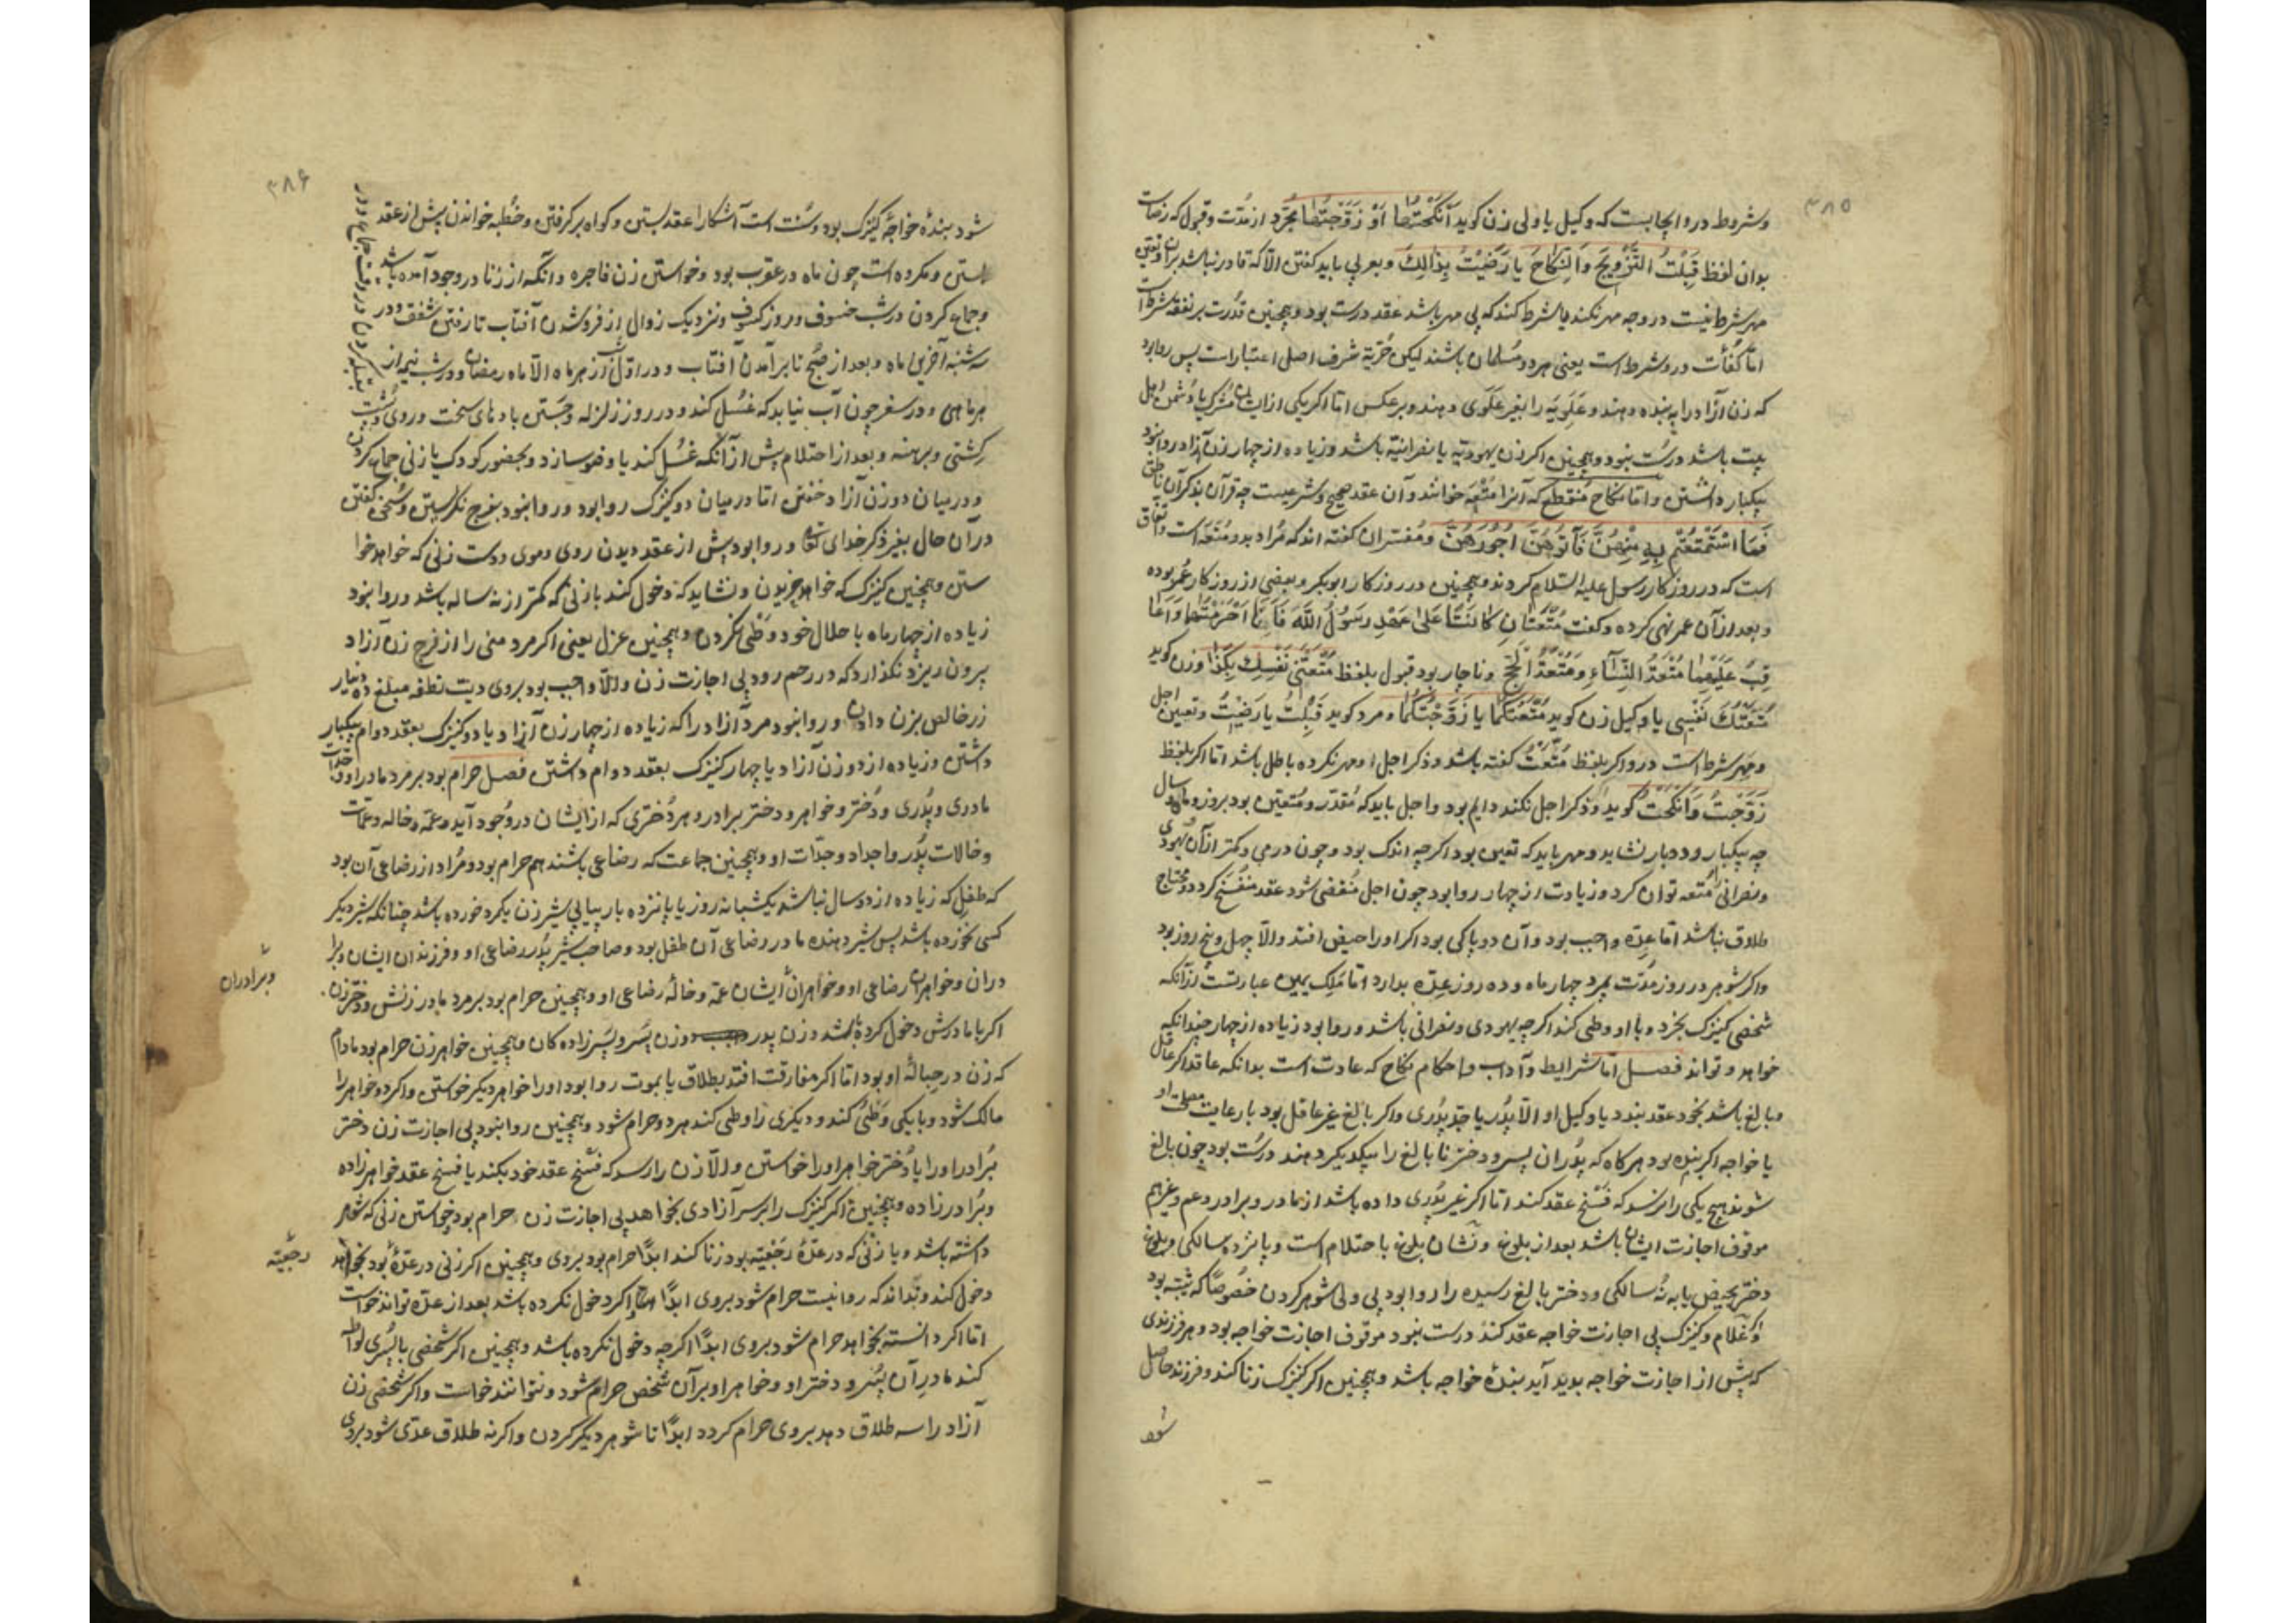 ۳۸۵
وشروط درو ایجابست که وکیل یا ولی زن کوید اَنْکَحْتُهَا اَوْ زَوَّجْتُهَا بمجرّد از مدّت وقبول که رضاست
بدان لفظ قَبِلْتُ التَّزْوِیجَ وَالنِّکَاحَ یا رَضِیْتُ بِذَالِكَ وبعربی باید کفتن الّا که قادر نباشد بران وتعیین
مهر شرط نیست در وجه مهر نکند یا شرط کند که بی مهر باشد عقد درست بود وهمچنین قدرت بر نفقه شرط است
امّا کفأت درو شرط است یعنی هر دو مُسلمان باشند لیکن حُرّیة شرف اصلی اعتبار است پس روا بود
که زن آزاد را به بنده دهند و عَلَویّه را بغیر عَلَوی دهند وبر عکس امّا اکر یکی از ایشان مُشرک یا دُشمن اهل
بیت باشد درست نبود وهمچنین اکر زن یهودیّه یا نصرانیّه باشد وزیاده از چهار زن آزاد روا نبود
بیکبار داشتن وامّا نکاح مُنقطع که آنرا مُتْعَه خوانند وآن عقد صحیح وشرعیست چه قرآن بذکر آن ناطق
فَمَا اسْتَمْتَعْتُم بِهِ مِنْهُنَّ فَآتُوهُنَّ اُجُورَهُنَّ ومُفسّران کفته اند که مُراد بدو مُتعَه است واتفاق
است که در روزکار رسول علیه السّلام کردند وهمچنین در روزکار ابوبکر وبعضی از روزکار عُمر بوده
وبعد از آن عمر نهی کرده وکفت مُتْعَتَانِ کَانَتَا عَلیٰ عَهْدِ رَسُولُ اللّهِ فَاَنَا اُحَرِّمُهُمَا وَاُعَا
قِبُ عَلَیْهِمَا مُتْعَةُ النِّسَاءِ وَمُتْعَةُ الْحَجِّ وناچار بود قبول بلفظ مَتِّعْنِی نَفْسِكَ بِکَذَا وزن کوید
مَتَّعْتُكَ نَفْسِی یا وکیل زن کوید مَتَّعْتُکَهَا یا زَوَّجْتُکَهَا ومرد کوید قَبِلْتُ یا رَضِیْتُ وتعیین اجل
ومهر شرط است درو اکر بلفظ مَتَّعْتُ کفته باشد وذکر اجل او مهر نکرده باطل باشد امّا اکر بلفظ
زَوَّجْتُ وَاَنْکَحْتُ کوید وذکر اجل نکند دایم بود واجل باید که مُقدّر ومُتعیّن بود بروز وماه وسال
چه بیکبار ودوبار نشاید ومهر باید که تعیین بود اکرچه اندک بود وچون درمی وکمتر از آن ویهودی
ونصرانی را مُتعه توان کرد وزیادت از چهار روا بود چون اجل مُنقضی شود عقد منفسخ کردد ومحتاج
طلاق نباشد امّا عدّه واجب بود وآن دو پاکی بود اکر او را حیض افتد والّا چهل وپنج روز بود
واکر شوهر در روز مدّت بمیرد چهار ماه وده روز عدّه بدارد امّا مَلِک یمین عبارتست از آنکه
شخصی کنیزک بخرد وبا او وطی کند اکرچه یهودی ونصرانی باشد وروا بود زیاده از چهار چندانکه
خواهد وتواند فصل امّا شرایط وآداب واحکام نکاح که عادت است بدانکه عاقد اکر عاقل
وبالغ باشد بخود عقد بندد یا وکیل او الّا پدُر یا جدّ پدُری واکر بالغ غیر عاقل بود بارعایت مصلحت او
یا خواجه اکر بنده بود هرکاه که پدُران پسر ودختر نابالغ را بیکدیکر دهند درست بود چون بالغ
شوند هیچ یکی را نرسد که فسْخ عقد کند امّا اکر غیر پدُری داده باشد از مادر وبرادر وعم وغیرهم
موقوف اجازت ایشان باشد بعد از بلوغ ونشان بلوغ باحتلام است وپانزده سالکی وبلوغ
دختر بحیض یا به نُه سالکی ودختر بالغ رسیده را روا بود بی ولی شوهر کردن خصُوصًا که ثیّبه بود
واکر غلام وکنیزک بی اجازت خواجه عقد کنند درست نبود موقوف اجازت خواجه بود وهر فرزندی
که پیش از اجازت خواجه بدید آید بنده خواجه باشد وهمچنین اکر کنیزک زنا کند وفرزند حاصل
شود
۳۸۶
شود بندهٔ خواجهٔ کنیزک بود وسُنت است آشکارا عقد بستن وکواه بر کرفتن وخُطبه خواندن پیش از عقد
بستن ومکروه است چون ماه در عقرب بود وخواستن زن فاجره وانکه از زنا در وجود آمده باشد
وجماع کردن در شب خسوف وروز کسوف ونزدیک زوال از فروشدن آفتاب تا رفتن شفق ودر
سه شنبه آخرین ماه وبعد از صُبح تا برآمدن آفتاب ودر اوّل شب از هر ماه الّا ماه رمضان ودر شب نیمه از
هر ماهی ودر سفر چون آب نیابد که غُسل کند ودر روز زلزله وجَستن بادهای سخت وروی وپُشت
کشتی وبرهنه وبعد از احتلام پیش از آنکه غسُل کند یا وضو سازد وبحضور کودک یا زنی جماع کردن
ودر میان دو زن آزاد خفتن امّا در میان دو کنیزک روا بود وروا نبود بفرج نکریستن وسُخن کفتن
در آن حال بغیر ذکر خدای تعالی وروا بود پیش از عقد دیدن روی وموی ودست زنی که خواهد خوا
ستن وهمچنین کنیزک که خواهد خریدن ونشاید که دخول کند با زنی که کمتر از نه ساله باشد وروا نبود
زیاده از چهار ماه با حلال خود وَطْی نکردن وهمچنین عزل یعنی اکر مرد منی را از فرج زن آزاد
بیرون ریزد نکذارد که در رحم رود بی اجازت زن والّا واجب بود بروی دیت نطفه مبلغ ده دینار
زر خالص بزن دادن وروا نبود مرد آزاد را که زیاده از چهار زن آزاد یا دو کنیزک بعقد دوام بیکبار
داشتن وزیاده از دو زن آزاد یا چهار کنیزک بعقد دوام داشتن فصل حرام بود بر مرد مادر او وجدّات
مادری وپدُری ودُختر وخواهر ودختر برادر وهر دُختری که از ایشان در وُجود آید وعمّه وخاله وعمّات
وخالات پدُر واجداد وجدّات او وهمچنین جماعت که رضاعی باشند هم حرام بود ومُراد از رضاعی آن بود
که طفل که زیاده از دو سال نباشد یکشبانه روز یا پانزده بار پیاپی شیر زن یکمرد خورده باشد چنانکه شیر دیکر
کسی نخورده باشد پس شیر دهنده مادر رضاعی آن طفل بود وصاحب شیر پدُر رضاعی او وفرزندان ایشان وبرا
دران وخواهران رضاعی او وخواهران ایشان عمّه وخالهٔ رضاعی او وهمچنین حرام بود بر مرد مادر زنش ودختر زن
وبرادران
اکر با مادرش دخول کرده باشد وزن پدر وزن پسَر وپسَرزاده کان وهمچنین خواهر زن حرام بود مادام
که زن در حبالهٔ او بود امّا اکر مفارقت افتد بطلاق یا بموت روا بود او را خواهر دیکر خواستن واکر دو خواهر را
مالک شود وبا یکی وَطْی کند ودیکری را وطی کند هر دو حرام شود وهمچنین روا نبود بی اجازت زن دختر
برُادر او را یا دُختر خواهر او را خواستن والّا زن را رسد که فسْخ عقد خود بکند یا فسخ عقد خواهرزاده
وبرُادرزاده وهمچنین اکر کنیزک را بر سر آزادی بخواهد بی اجازت زن حرام بود وخواستن زنی که شوهر
داشته باشد وبا زنی که در عدّهٔ رَجْعیّه بود زنا کند ابدًا حرام بود بروی وهمچنین اکر زنی در عدّه بُود بخواهد
رجعیّه
دخول کند ونداند که روا نیست حرام شود بروی ابدًا واکر دخول نکرده باشد بعد از عدّه تواند خواست
امّا اکر دانسته بخواهد حرام شود بروی ابدًا اکرچه دخول نکرده باشد وهمچنین اکر شخصی با پسُری لواطه
کند مادر آن پسُر ودختر او وخواهر او بر آن شخص حرام شود ونتواند خواست واکر شخصی زن
آزاد را سه طلاق دهد بروی حرام کردد ابدًا تا شوهر دیکر کردن واکر نه طلاق عدّی شود بروی